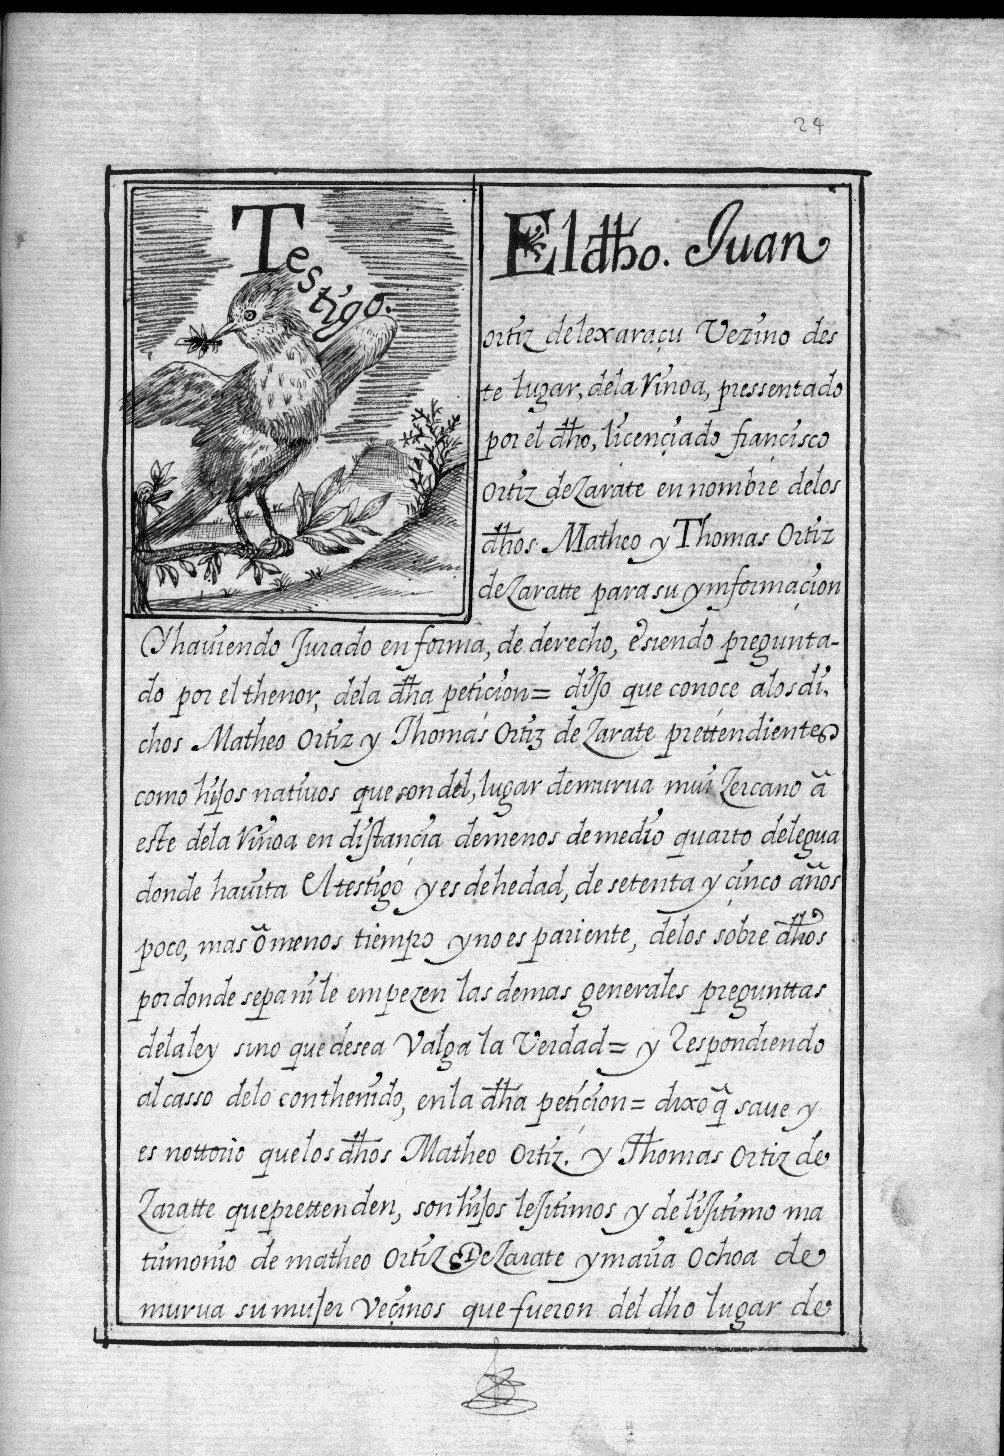 24
Testigo.
El dho. Juan
ortiz de lexaraçu Vezino des
te lugar, de la Viñoa, pressentado
por el dho, liçençiado françisco
Ortiz de Zarate en nombre de los
dhos Matheo y Thomas Ortiz
de Zaratte para su ymformaçion
Y haviendo Jurado en forma, de derecho, e siendo pregunta-
do por el thenor, de la dha petiçion= dijo que conoce a los di,
chos Matheo Ortiz y Thomas Ortiz de Zarate prettendientes
como hijos nativos que son del, lugar de murua mui Zercano â
este de la Viñoa en distançia de menos de medio quarto de legua
donde havita El testigo y es de hedad, de setenta y çinco años
poco, mas ô menos tiempo y no es pariente, de los sobre dhos
por donde se pa ni le empezen las demas generales pregunttas
de la ley sino que desea Valga la Verdad= y Respondiendo
al casso de lo conthenido, en la dha petiçion= dixo q̃ saue y
es nottorio que los dhos Matheo Ortiz. y Thomas Ortiz de
Zaratte que prettenden, son hijos lejitimos y de lijitimo ma
trimonio de matheo Ortiz De Zarate y maria Ochoa de
murua su mujer Veçinos que fueron del dho lugar de